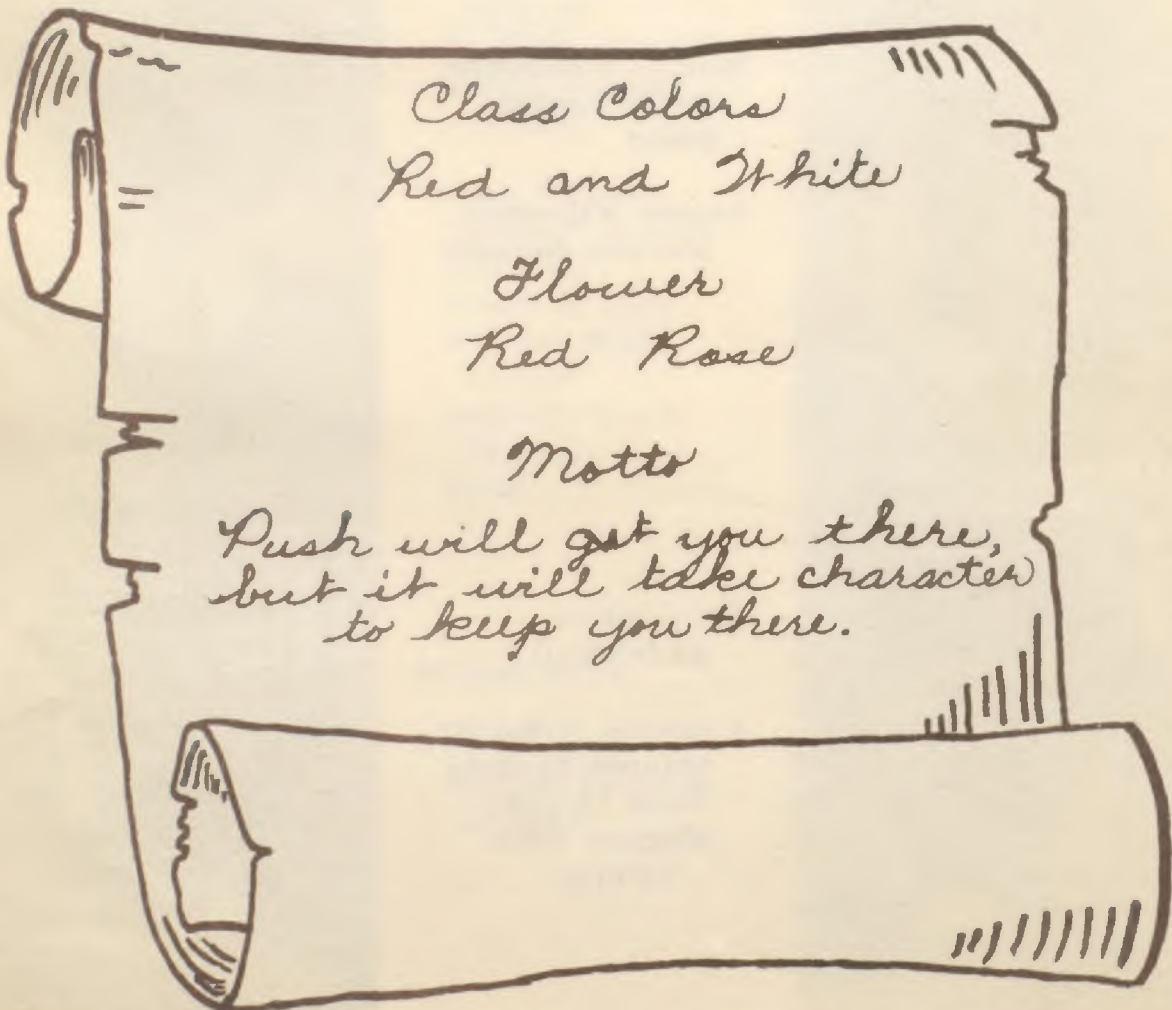 Class Colors
Red and White
Flower
Red Rose
Motto
Push will get you there,
but it will take character
to keep you there.